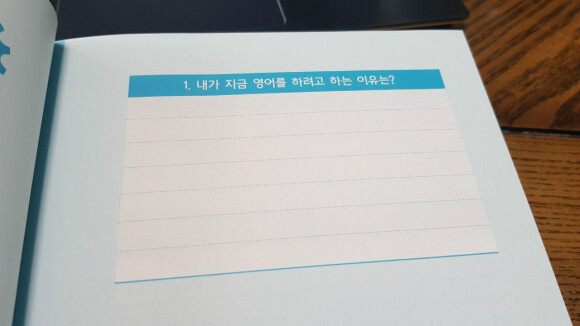 1. 내가 지금 영어를 하려고 하는 이유는?